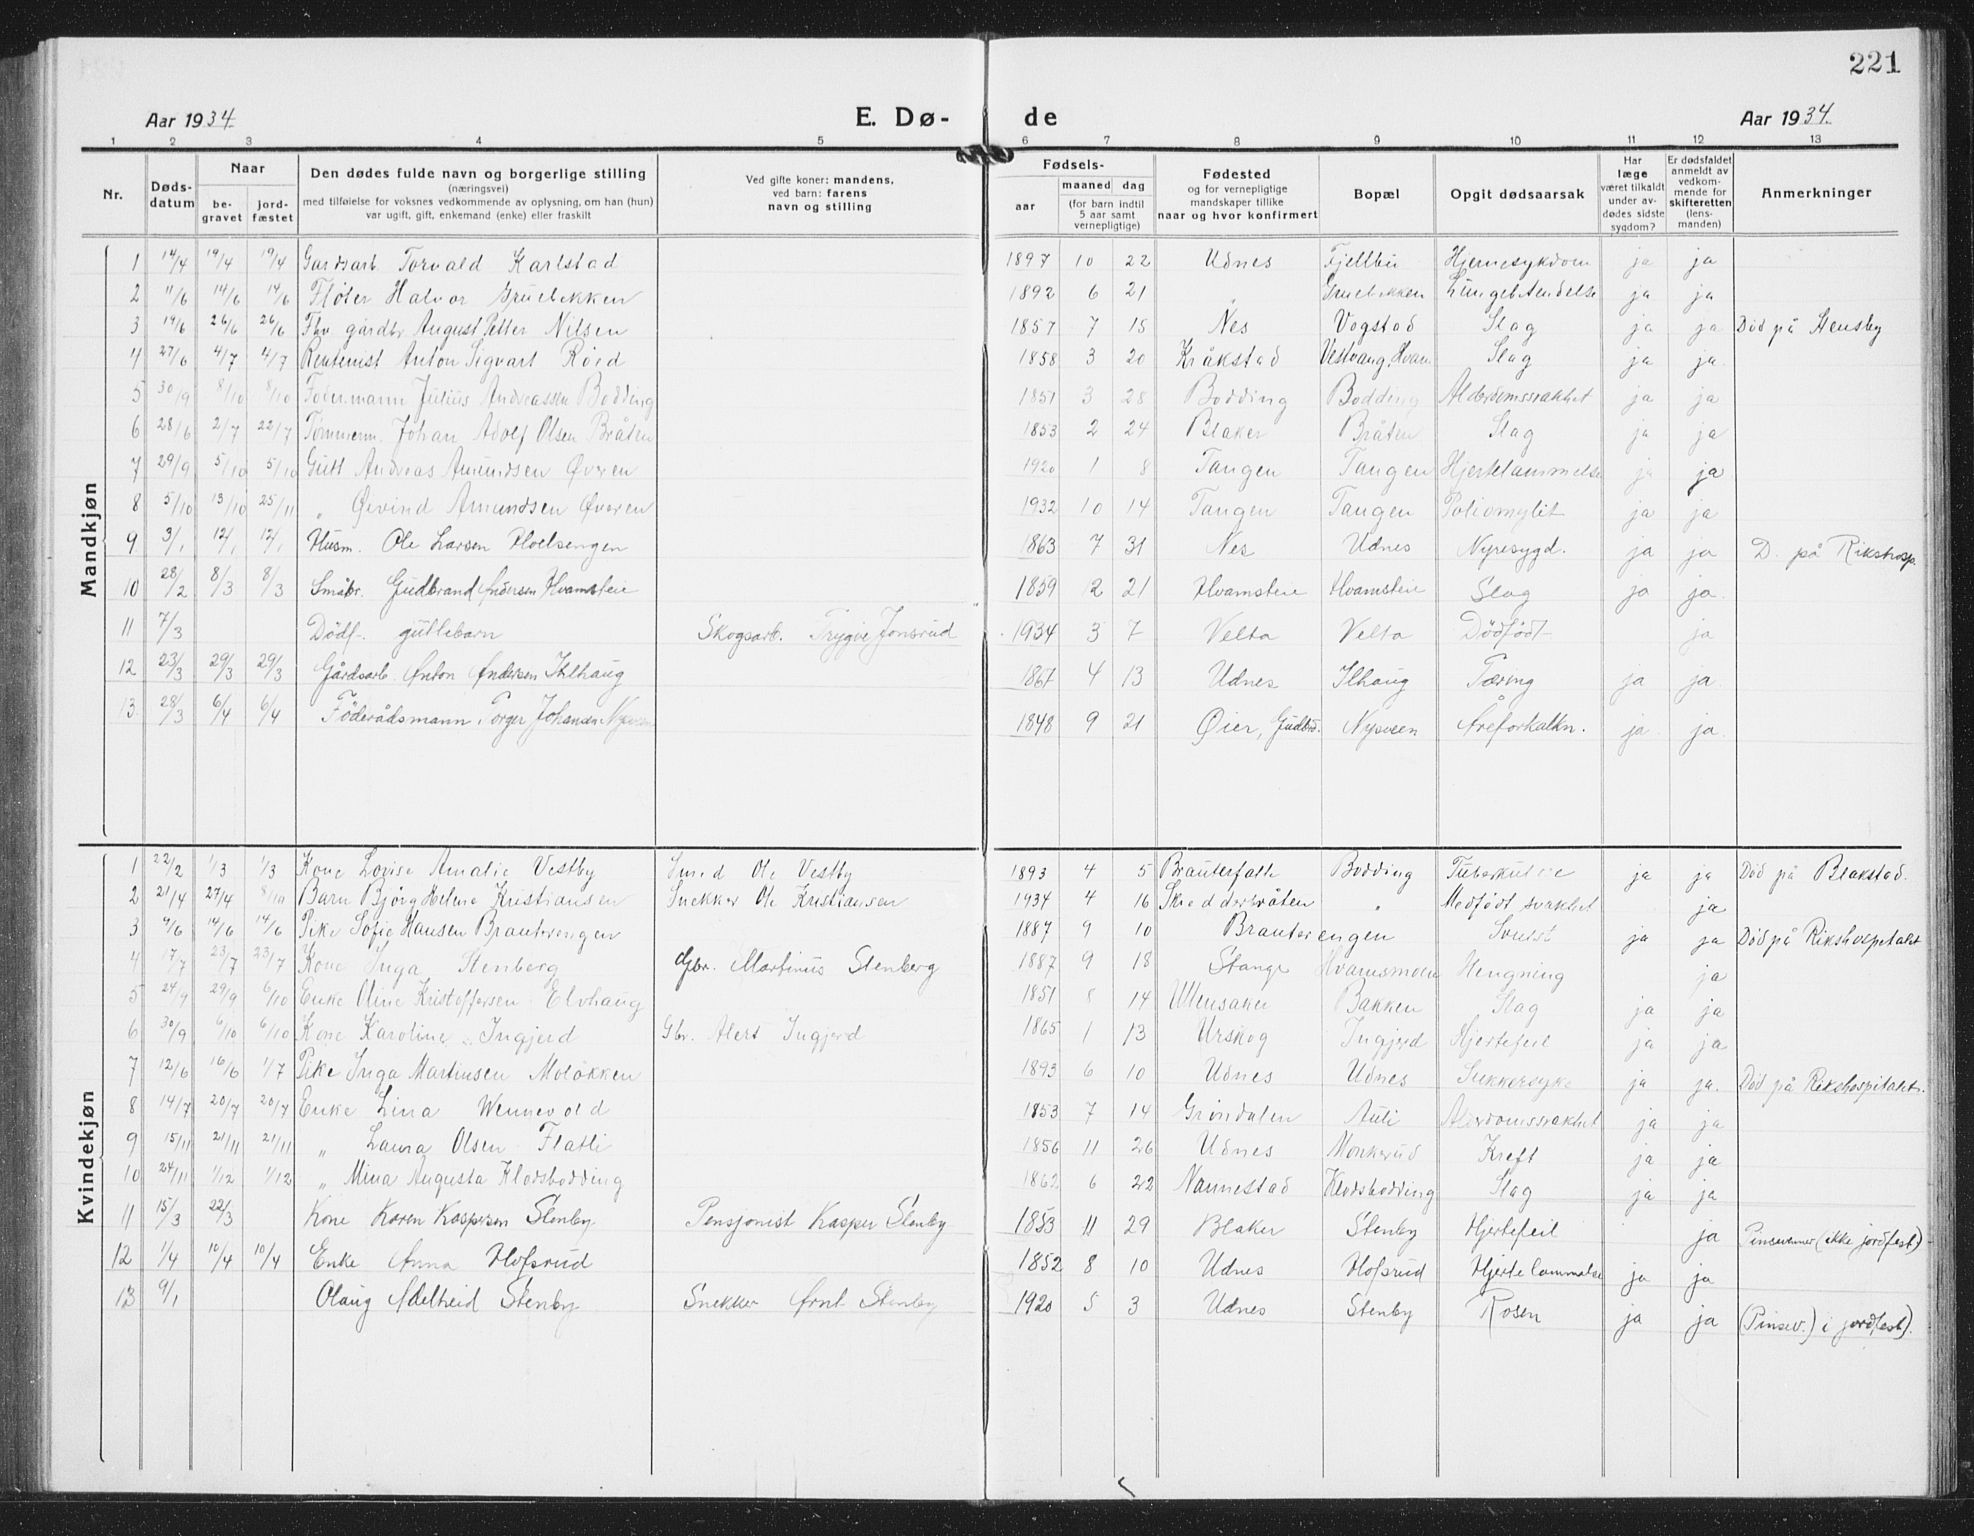 221
Aar 1934.
E. Dø-
de
Aar 1934.
1 2 3 4 5 6 7 8 9 10 11 12 13
Nr.
Døds-
datum
Naar
be-
gravet
jord-
fæstet
Den dødes fulde navn og borgerlige stilling
(næringsvei)
med tilføielse for voksnes vedkommende av oplysning, om han (hun)
var ugift, gift, enkemand (enke) eller fraskilt
Ved gifte koner: mandens,
ved barn: farens
navn og stilling
Fødsels-
aar
maaned dag
(for barn indtil
5 aar samt
vernepligtige)
Fødested
og for vernepligtige
mandskaper tillike
naar og hvor konfirmert
Bopæl
Opgit dødsaarsak
Har
læge
været tilkaldt
under av-
dødes sidste
sygdom?
Er dødsfaldet
anmeldt av
vedkom-
mende for
skifteretten
(lens-
manden)
Anmerkninger
Mandkjøn
1 14/4 19/4 19/4 Gardsarb. Torvald Karlstad 1897 10 22 Udnes Fjellbu Hjernesykdom ja ja
2 11/6 14/6 14/6 Fløter Halvor Gruebekken 1892 6 21 " Gruebekken Lungebetendelse ja ja
3 19/6 26/6 26/6 Fhv. gårdbr. August Petter Nilsen 1857 7 15 Nes Vogstad Slag ja ja Död på Stensby
4 27/6 4/7 4/7 Rentenist Anton Sigvart Röed 1858 3 20 Kråkstad Vestvang, Hvam Slag ja ja.
5 30/9 8/10 8/10 Foderm​ann Julius Andreassen Bodding 1851 3 28 Bodding Bodding Alderdomssvakhet ja ja
6 28/6 2/7 22/7 Tømmerm. Johan Adolf Olsen Bråten 1853 2 24 Blaker Bråten Slag ja ja
7 29/9 5/10 5/10 Gutt Andreas Amundsen Øveren 1920 1 8 Tangen Tangen Hjertelammelse ja ja
8 5/10 13/10 25/11 " Øivind Amundsen Øveren 1932 10 14 Tangen Tangen Poliomylit ja ja
9 3/1 12/1 12/1 Husm. Ole Larsen Hoelsengen 1863 7 31 Nes Udnes Nyresygd. ja ja D. på Rikshosp.
10 28/2 8/3 8/3 Småbr. Gudbrand Andersen Hvamsteie 1859 12 21 Hvamsteie Hvamsteie Slag ja ja.
11 7/3 Dödf. guttebarn Skogsarb. Trygve Jonsrud 1934 3 7 Velta Velta Dödfödt ja
12 23/3 29/3 29/3 Gårdsarb. Anton Andersen Ilhaug 1867 4 13 Udnes Ilhaug Tæring ja ja.
13 28/3 6/4 6/4 Föderådsmann, Torger Johansen Nysveen 1848 9 21 Øier, Gudbrd. Nysveen Åreforkalkn. ja ja.
Kvindekjøn
1 22/2 1/3 1/3 Kone Lovise Amalie Vestby Smed Ole Vestby 1893 4 5 Brauterfallt Bodding Tuberkulose ja ja Död på Blakstad.
2 21/4 27/4 8/10 Barn Bjørg Helene Kristiansen Snekker Ole Kristiansen 1934 4 16 Skredderbråten " Medfödt svakhet ja
3 9/6 14/6 14/6 Pike Sofie Hansen Brauterengen 1887 9 10 Brauterengen Svulst ja ja Död på Rikshospitalet
4 17/7 23/7 23/7 Kone Inga Stenberg Gbr. Martinus Stenberg 1887 9 18 Stange Hvamsmoen Hengning ja
5 24/9 29/9 6/10 Enke Oline Kristoffersen Elvhaug 1851 8 14 Ullensaker Bakken Slag ja ja
6 30/9 6/10 6/10 Kone Karoline Ingjerd Gbr. Alert Ingjerd 1865 1 13 Urskog Ingjerd Hjertefeil ja ja
7 12/6 16/6 1/7 Pike Inga Martinsen Moløkken 1893 6 10 Udnes Udnes Sukkersyke ja ja. Död på Rikshospitalet.
8 14/7 20/7 20/7 Enke Lina Wennevold 1853 7 14 Grøndalen Auli Alderdomssvakhet ja ja
9 15/11 21/11 21/11 " Laura Olsen Flatli 1856 11 26 Udnes Monkerud Kreft ja ja
10 24/11 1/12 1/12 " Mina Augusta Klodsbodding 1862 6 22 Nannestad Klodsbodding Slag ja ja
11 15/3 22/3 Kone Karen Kaspersen Stenby Pensjonist Kasper Stenby 1853 11 29 Blaker Stenby Hjertefeil ja Pinsevenner (ikke jordfest)
12 1/4 10/4 10/4 Enke Anna Hofsrud 1852 8 10 Udnes Hofsrud Hjertelammelse ja ja
13 9/1 Olaug Adelheid Stenby Snekker Arnt Stenby 1920 5 3 Udnes Stenby Rosen ja ja (Pinsev.) i jordfest).